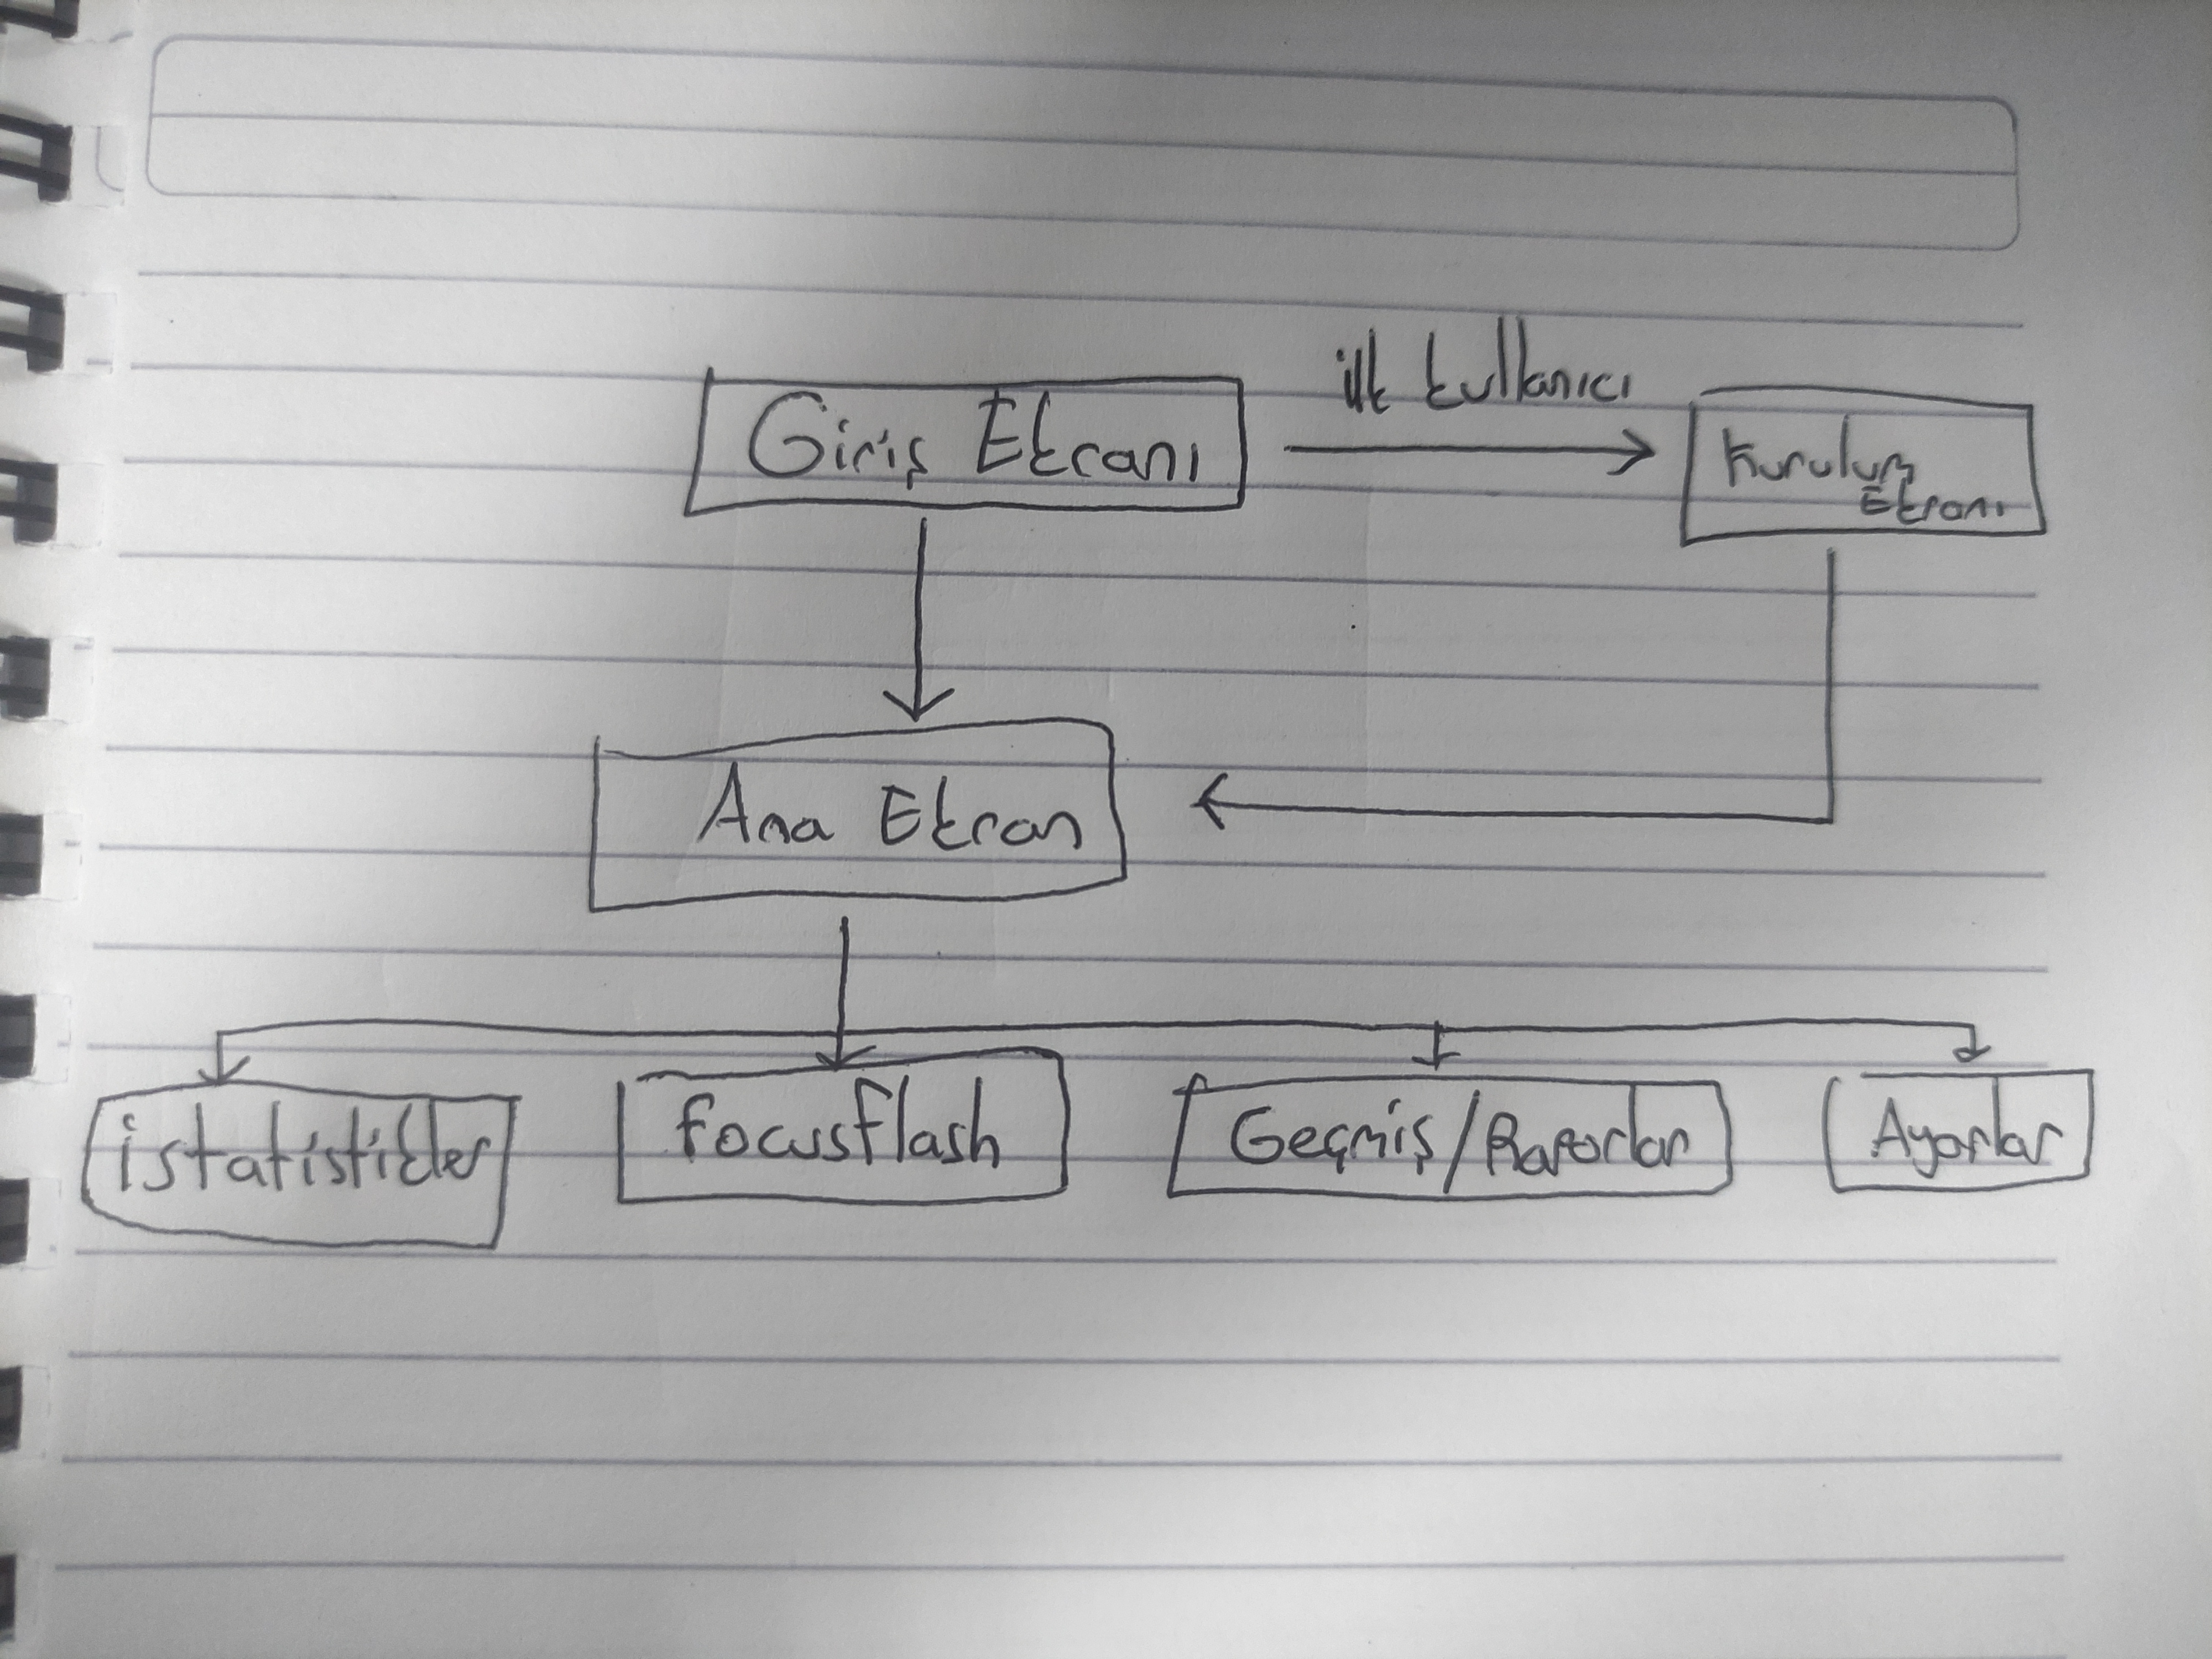 Giriş Ekranı
ilk kullanıcı
Kurulum
Ekranı
Ana Ekran
istatistikler
focusflash
Geçmiş/Raporlar
Ayarlar